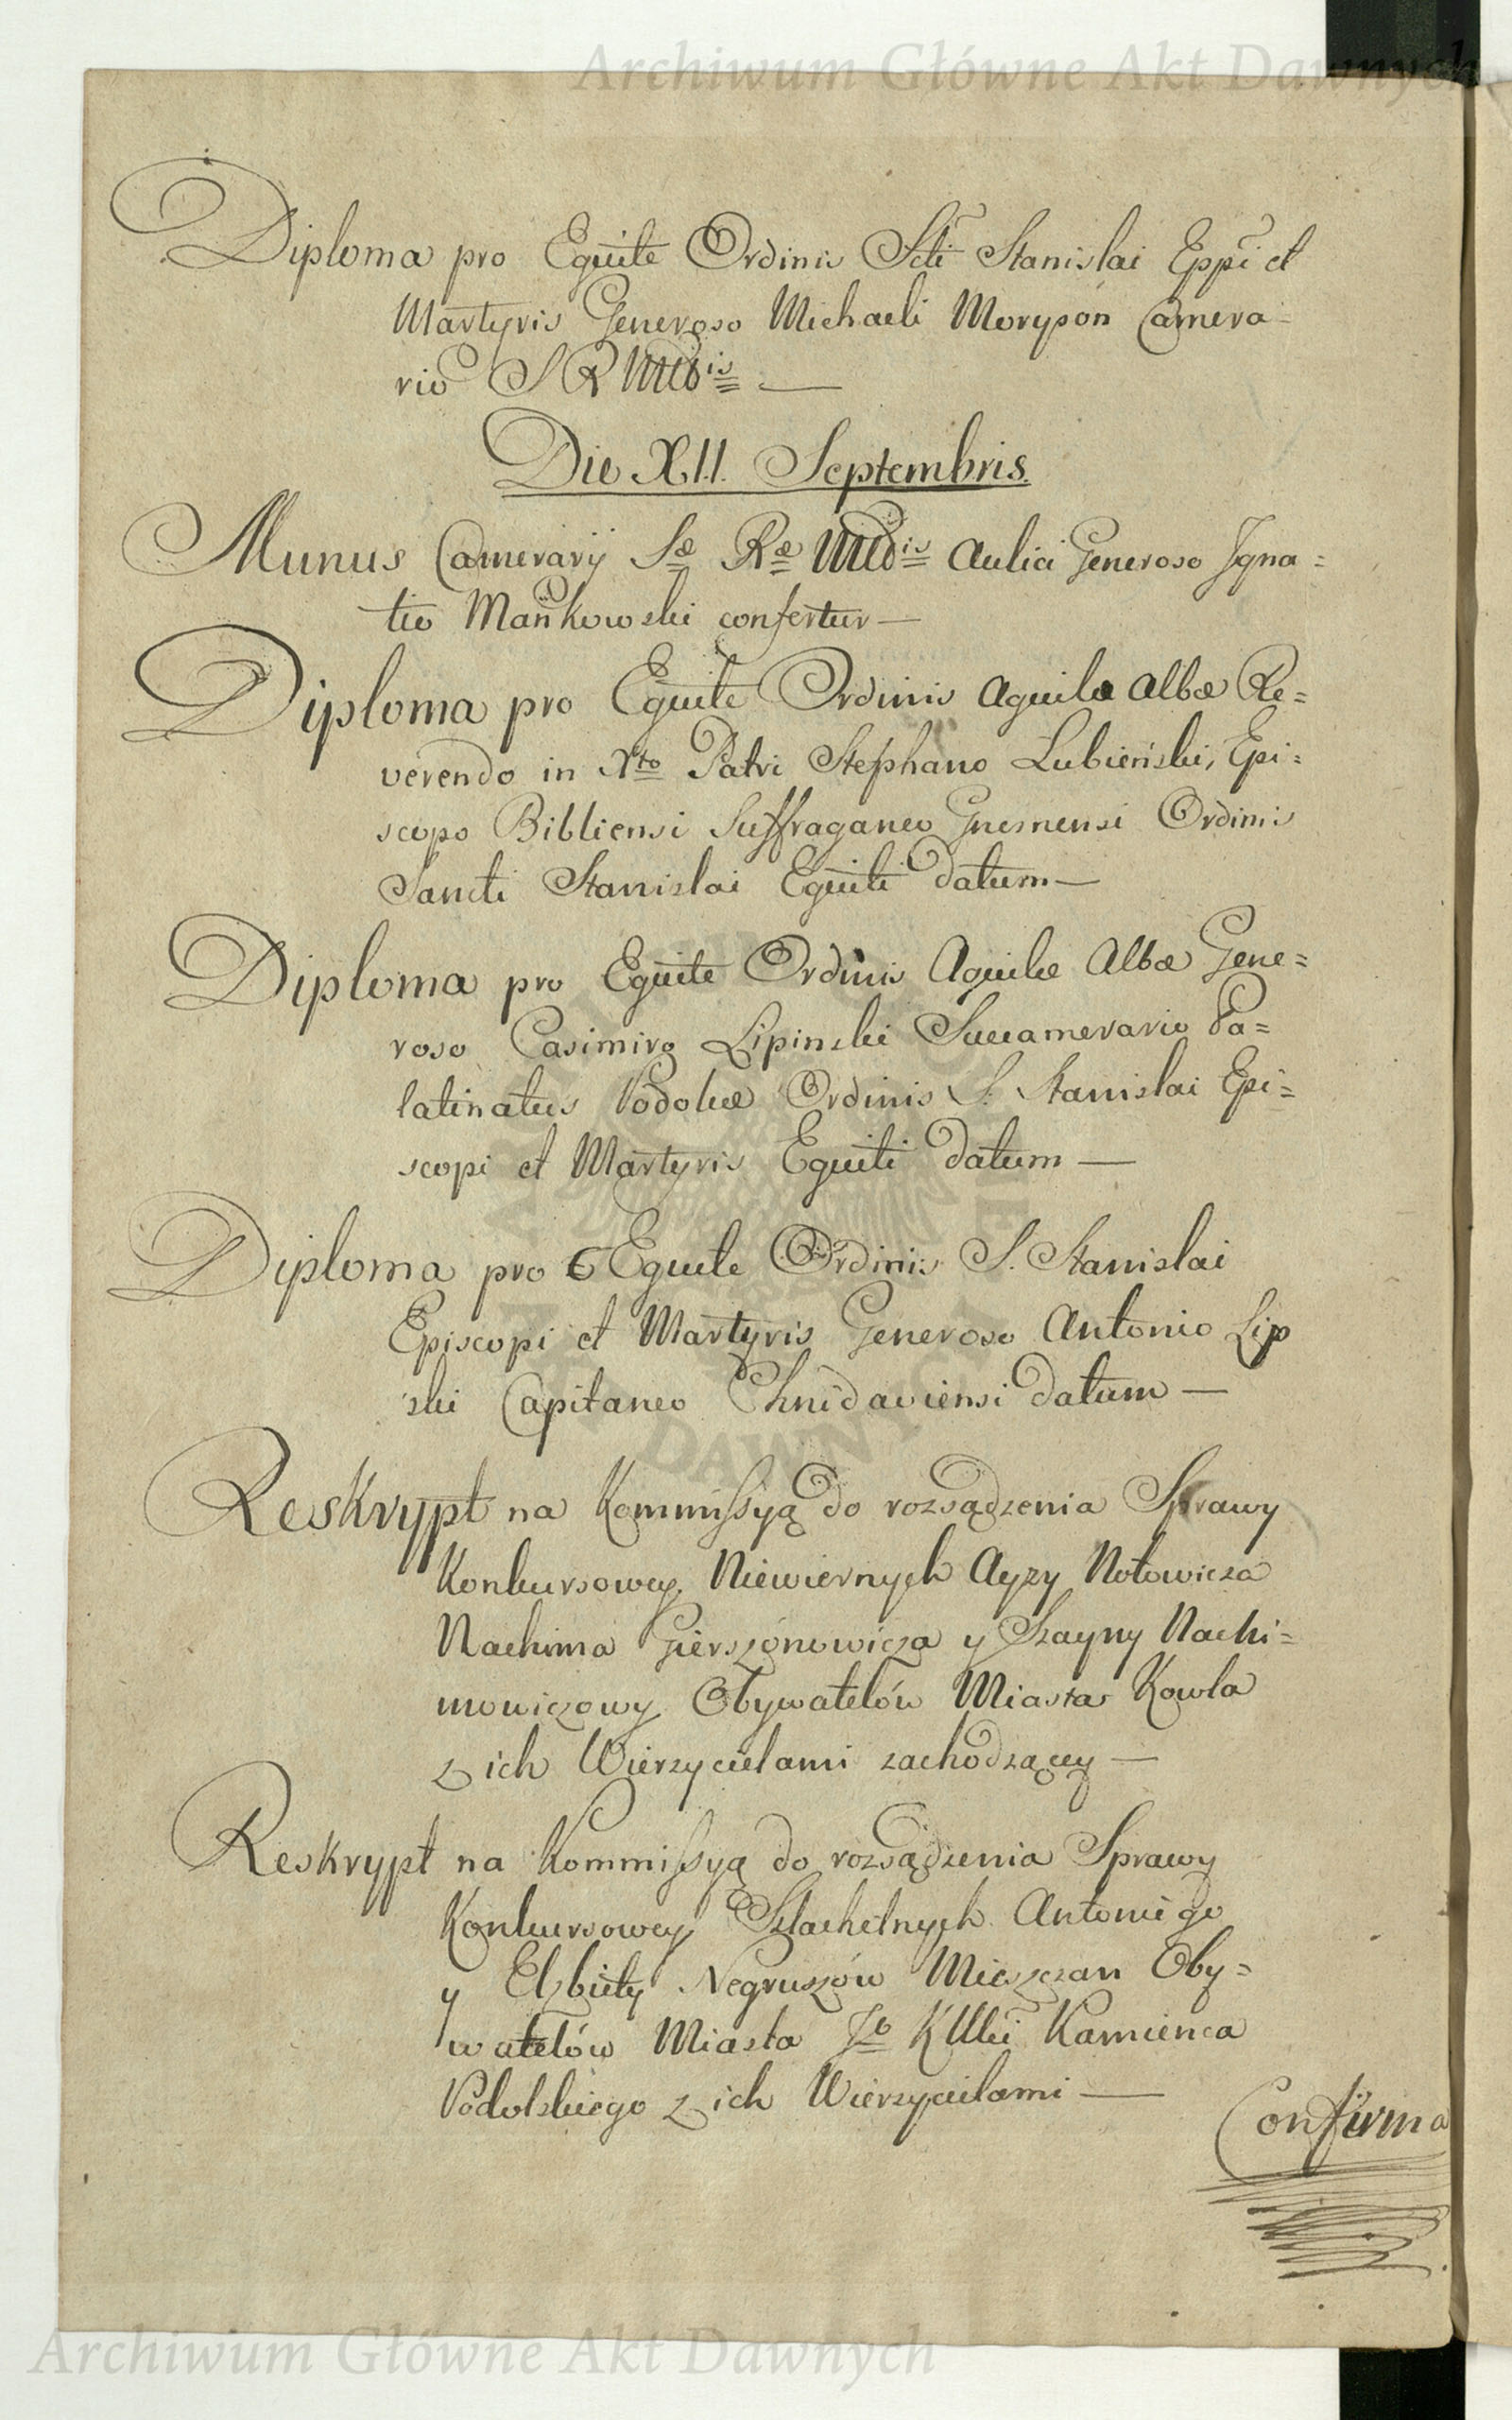 Archiwum Główne Akt Dawnych
Diploma pro Equite Ordinis Scti Stanislai Eppi et
Martyris Generoso Michaeli Moryson Camera-
rio S R Mtis —
Die XII. Septembris.
Munus Camerarij Sæ Ræ Mtis Aulici Generoso Igna=
tio Mańkowski confertur —
Diploma pro Equite Ordinis Aquilæ Albæ Re=
verendo in Xto Patri Stephano Łubieński, Epi=
scopo Bibliensi Suffraganeo Gnesnensi Ordinis
Sancti Stanislai Equiti datum —
Diploma pro Equite Ordinis Aquilæ Albæ Gene=
roso Casimiro Lipinski Succamerario Pa=
latinatus Podoliæ Ordinis S. Stanislai Epi=
scopi et Martyris Equiti datum —
Diploma pro Equite Ordinis S. Stanislai
Episcopi et Martyris Generoso Antonio Lip
ski Capitaneo datum —
Reskrypt na Kommissyą do rozsądzenia Sprawy
Konkursowey Niewiernych Ayzy Notowicza
Nachima Gierszonowicza y Szayny Nachi=
mowiczowy Obywatelów Miasta Kowla
z ich Wierzycielami zachodzącey —
Reskrypt na Kommissyą do rozsądzenia Sprawy
Konkursowey Szlachetnych Antoniego
y Elzbiety Negruszów Mieszczan Oby=
watelów Miasta Jo KMci Kamienca
Podolskiego z ich Wierzycielami —
Confirma
Archiwum Główne Akt Dawnych